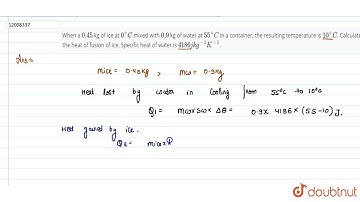 12008337
When a 0.45 kg of ice at 0°C mixed with 0.9 kg of water at 55°C in a container, the resulting temperature is 10°C. Calculate
the heat of fusion of ice. Specific heat of water is 4186 jkg⁻¹K⁻¹.
Ans:-
mice = 0.45kg , mw = 0.9kg
Heat lost by water in cooling from 55°C to 10°C
Q1 = mw x sw x Δθ = 0.9 x 4186 x (55-10) J.
Heat gained by ice.
Q2 = mice x
doubtnut